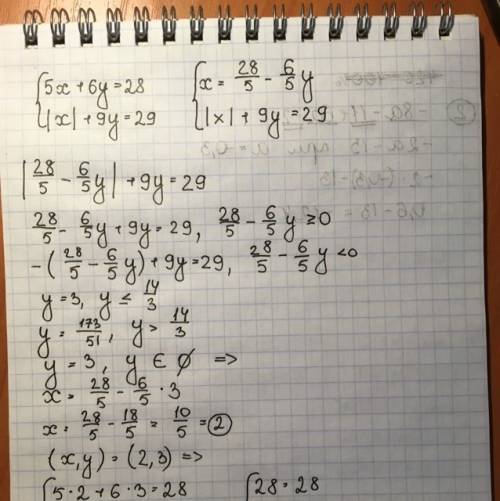 {5x+6y=28 {x= 28/5 - 6/5 y
{|x|+9y=29 {|x|+9y=29
|28/5 - 6/5 y| +9y=29
28/5 - 6/5 y+9y=29, 28/5 - 6/5 y≥0
-(28/5 - 6/5 y)+9y=29, 28/5 - 6/5 y<0
y=3, y≤ 14/3
y= 173/51, y> 14/3
y=3, y ∈ ∅ =>
x= 28/5 - 6/5 · 3
x= 28/5 - 18/5 = 10/5 = 2
(x,y) = (2,3) =>
{5·2+6·3=28 {28=28